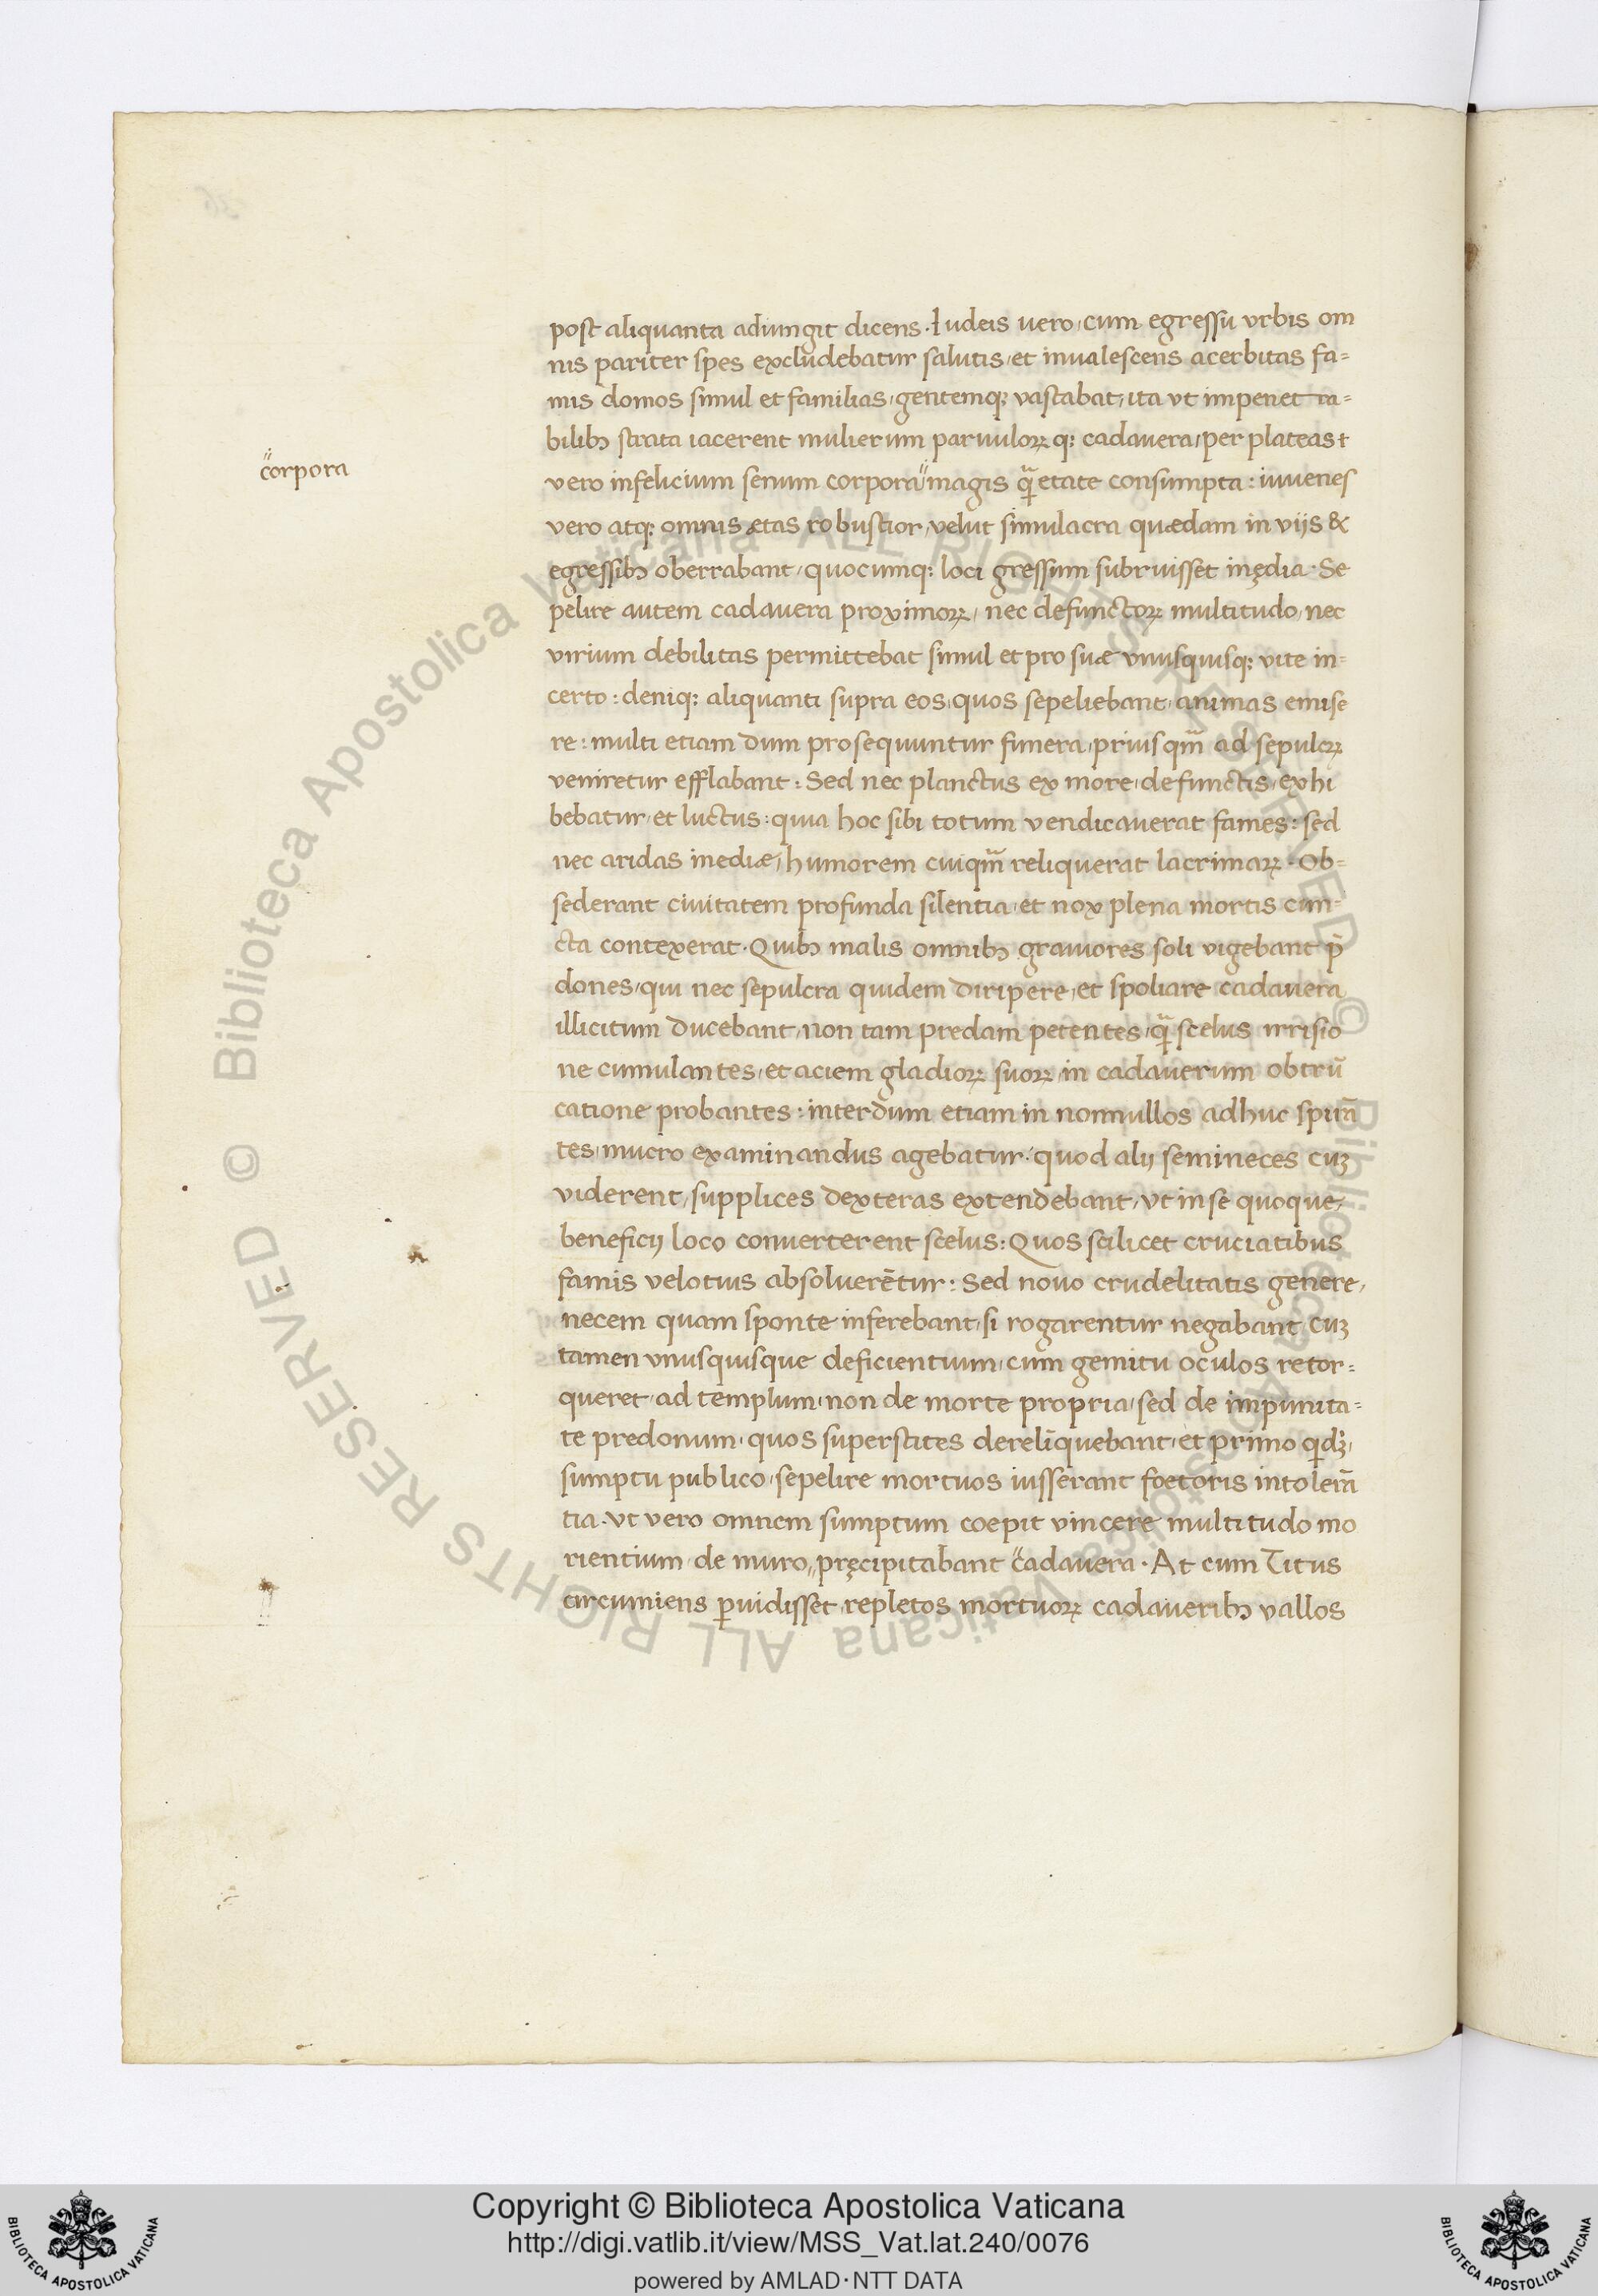 post aliquanta adiungit dicens · Iudeis uero, cum egressu vrbis om
nis pariter spes excludebatur salutis, et inualescens acerbitas fa=
mis domos simul et familias, gentemq; vastabat, ita vt impenet ra=
bilibꝫ strata iacerent mulierum paruuloꝝ q; cadauera, per plateas t
corpora
vero infelicium senum corpora magis quā etate consumpta : iuuenes
vero atq; omnis ætas robustior, velut simulacra quædam in viis &
egressibꝫ oberrabant, quocumq; loci gressum subruisset inędia · Se
pelire autem cadauera proximoꝝ, nec defunctoꝝ multitudo, nec
virium debilitas permittebat simul et pro suæ vnusquisq; vite in=
certo : deniq; aliquanti supra eos, quos sepeliebant, animas emise
re : multi etiam dum prosequuntur funera, priusqm̄ ad sepulcꝝ
veniretur efflabant : Sed nec planctus ex more, defunctis, exhi
bebatur, et luctus : quia hoc sibi totum vendicauerat fames : sed
nec aridas inediæ, humorem cuiqm̄ reliquerat lacrimaꝝ · Ob=
sederant ciuitatem profunda silentia, et nox plena mortis cun=
cta contexerat · Quibꝫ malis omnibꝫ grauiores soli vigebant p̄
dones, qui nec sepulcra quidem diripere, et spoliare cadauera
illicitum ducebant, non tam predam petentes, quā scelus irrisio
ne cumulantes, et aciem gladioꝝ suoꝝ in cadauerum obtrū
catione probantes : interdum etiam in nonnullos adhuc spirā
tes, mucro examinandus agebatur · quod alij semineces cuꝫ
viderent, supplices dexteras extendebant, vt in se quoque,
beneficij loco conuerterent scelus : Quos scilicet cruciatibus
famis velotius absoluerētur : Sed nouo crudelitatis genere,
necem quam sponte inferebant, si rogarentur negabant, cuꝫ
tamen vnusquisque deficientium, cum gemitu oculos retor=
queret, ad templum, non de morte propria, sed de impunita=
te predonum, quos superstites derelinquebant, et primo qdꝫ,
sumptu publico, sepelire mortuos iusserant foetoris intolerā
tia · vt vero omnem sumptum coepit vincere multitudo mo
rientium, de muro,, pręcipitabant cadauera · At cum Titus
circumiens ꝑuidisset, repletos mortuoꝝ cadaueribꝫ vallos
Copyright © Biblioteca Apostolica Vaticana
http://digi.vatlib.it/view/MSS_Vat.lat.240/0076
powered by AMLAD·NTT DATA